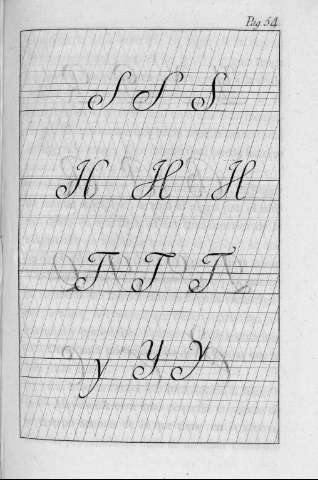 Pag 54
S S S
H H H
T T T
y y y